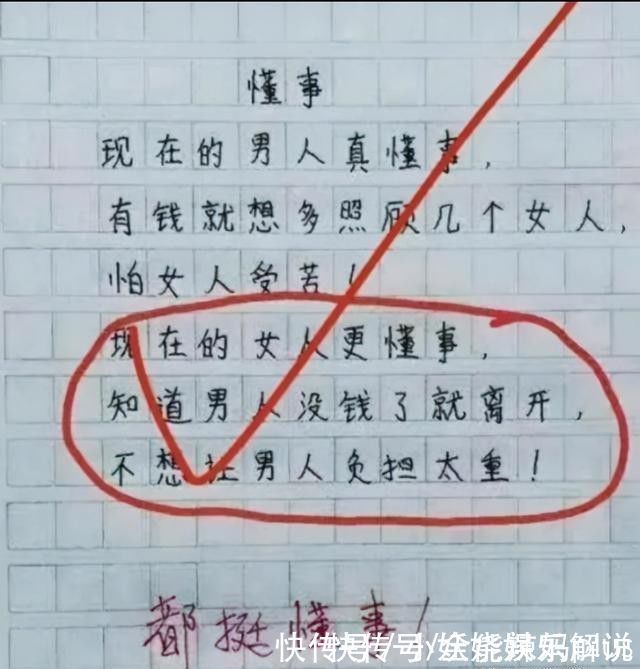 懂事
现在的男人真懂事，
有钱就想多照顾几个女人，
怕女人受苦！
现在的女人更懂事，
知道男人没钱了就离开，
不想让男人负担太重！
都挺懂事！
快传号/